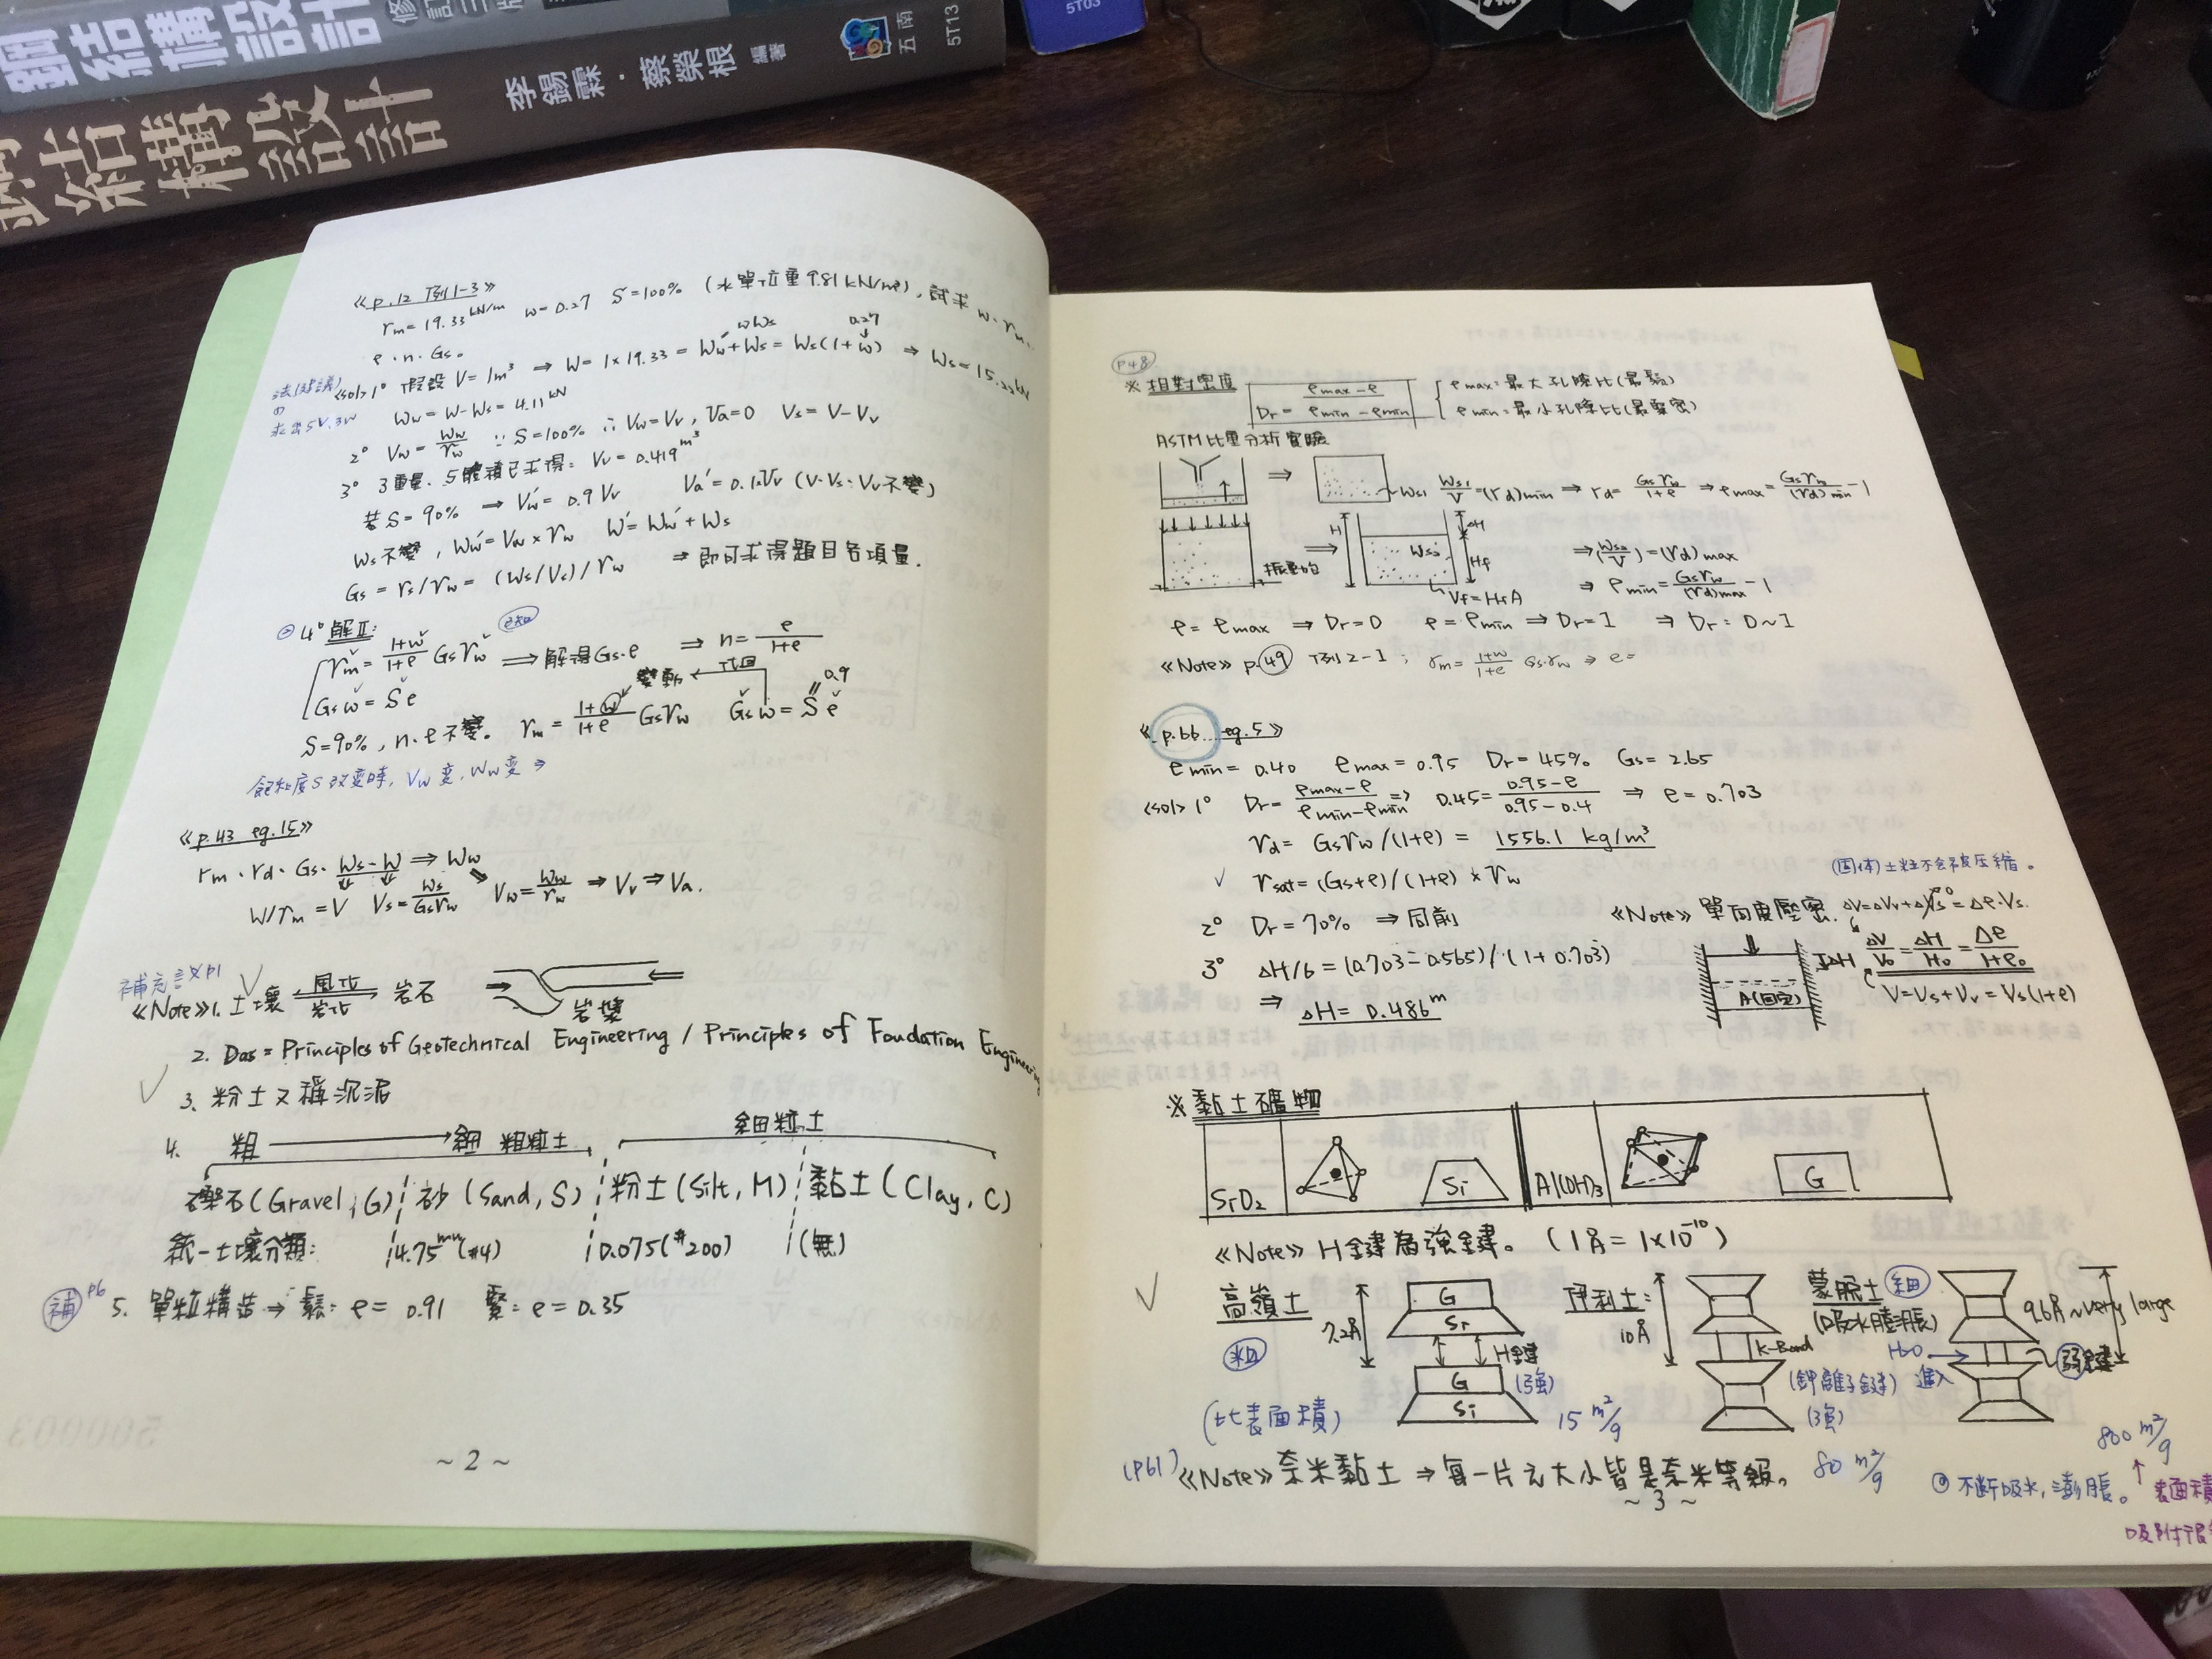 鋼結構設計
修訂三版
鋼結構設計
李錫霖・蔡榮根 編著
五南
5T13
5T03
《p.12 例1-3》
rm = 19.33 kN/m w = 0.27 S=100% (水單位重 9.81 kN/m³), 試求 w、rm、
e、n、Gs。
<sol> 1° 假設 V = 1m³ ⇒ W = 1×19.33 = Ww + Ws = Ws(1+w) ⇒ Ws = 15.22 kN
wWs
0.27
Ww = W - Ws = 4.11 kN
2° Vw = Ww/rw ∵ S=100% ∴ Vw = Vv, Va = 0 Vs = V - Vv
3° 3重量、5體積已求得: Vv = 0.419 m³
若 S = 90% → Vw' = 0.9 Vv Va' = 0.1 Vv (V、Vs、Vv不變)
Ws不變, Ww' = Vw × rw W' = Ww' + Ws
Gs = rs/rw = (Ws/Vs)/rw ⇒ 即可求得題目各項量.
4° 解II:
已知
rm = (1+w)/(1+e) Gs rw ⇒ 解得 Gs、e ⇒ n = e/(1+e)
Gs w = S e
變動 代回 0.9
S=90%, n、e不變。 rm = (1+w)/(1+e) Gs rw Gs w = S e
飽和度S改變時, Vw變, Ww變 ⇒
《p.43 eg.15》
rm、rd、Gs、Ws - W ⇒ Ww
W/rm = V Vs = Ws/(Gs rw) Vw = Ww/rw ⇒ Vv ⇒ Va.
補充講義p1
《Note》1. 土壤 風化 岩化 岩石 岩漿
2. Das = Principles of Geotechnical Engineering / Principles of Foudation Engineering
3. 粉土又稱沉泥
4. 粗 → 細 粗粒土 細粒土
礫石(Gravel, G) 砂(Sand, S) 粉土(Silt, M) 黏土(Clay, C)
統一土壤分類: 4.75mm(#4) 0.075(#200) (無)
補 p6 5. 單粒構造 → 鬆: e = 0.91 緊: e = 0.35
~ 2 ~
p48
※ 相對密度 Dr = (emax - e)/(emin - emin)
emax: 最大孔隙比(最鬆)
emin: 最小孔隙比(最緊密)
ASTM比重分析實驗
Ws1 Ws1/V = (rd)min ⇒ rd = Gs rw/(1+e) ⇒ emax = Gs rw/(rd)min - 1
H Ws2 ΔH Hf
Vf = Hf A
⇒ (Ws2/V) = (rd)max
⇒ emin = Gs rw/(rd)max - 1
e = emax ⇒ Dr = 0 e = emin ⇒ Dr = 1 ⇒ Dr: 0~1
《Note》 p.49 例2-1; rm = (1+w)/(1+e) Gs·rw ⇒ e=
《p.66 eg.5》
emin = 0.40 emax = 0.95 Dr = 45% Gs = 2.65
<sol> 1° Dr = (emax - e)/(emin - emin) ⇒ 0.45 = (0.95 - e)/(0.95 - 0.4) ⇒ e = 0.703
rd = Gs rw/(1+e) = 1556.1 kg/m³
rsat = (Gs+e)/(1+e) × rw
2° Dr = 70% ⇒ 同前
3° ΔH/6 = (0.703 - 0.565)/(1 + 0.703)
⇒ ΔH = 0.486 m
(固体)土粒不會被壓縮。
《Note》 單向度壓密. ΔV = ΔVv + ΔVs = Δe·Vs.
0
ΔV/V0 = ΔH/H0 = Δe/(1+e0)
ΔH
A(固定)
V = Vs + Vv = Vs(1+e)
※ 黏土礦物
SiO2 Si Al(OH)3 G
《Note》 H鍵為強鍵。 (1Å = 1×10⁻¹⁰)
高嶺土 7.2Å G Si H鍵 (強) G Si
粗
(比表面積) 15 m²/g
伊利土: 10Å K-Bond
(鉀離子鍵) (強)
80 m²/g
蒙脫土 細
(吸水膨脹)
H2O 進入
9.6Å ~ very large
弱鍵
800 m²/g
(p61) 《Note》 奈米黏土 ⇒ 每一片之大小皆是奈米等級。
不斷吸水, 澎脹。 表面積
~ 3 ~